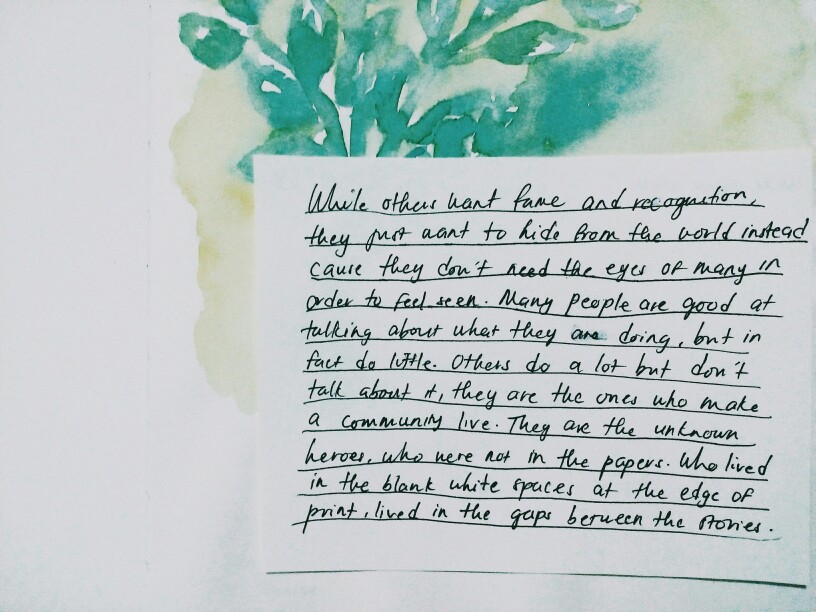 While others want fame and recognition,
they just want to hide from the world instead
cause they don't need the eyes of many in
order to feel seen. Many people are good at
talking about what they are doing, but in
fact do little. Others do a lot but don't
talk about it, they are the ones who make
a community live. They are the unknown
heroes, who were not in the papers. Who lived
in the blank white spaces at the edge of
print, lived in the gaps between the stories.